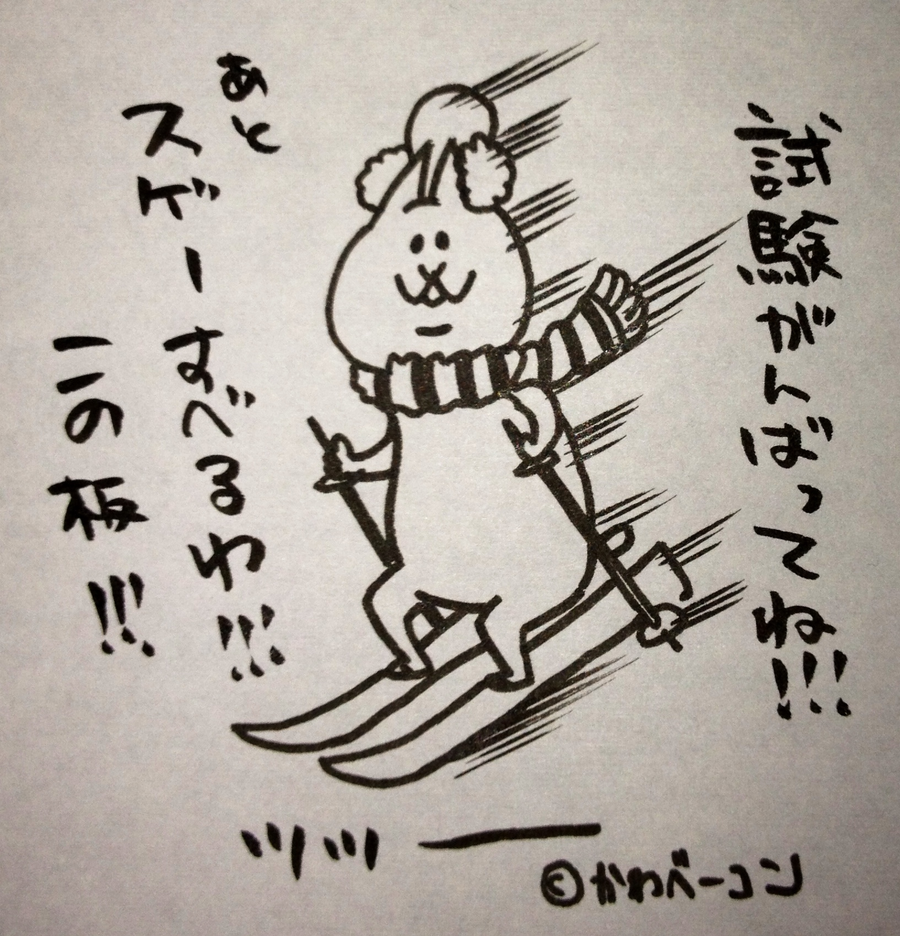 試験がんばってね!!!
あと
スゲーすべるわ!!!
この板!!!
ツツー
©かわべーコン